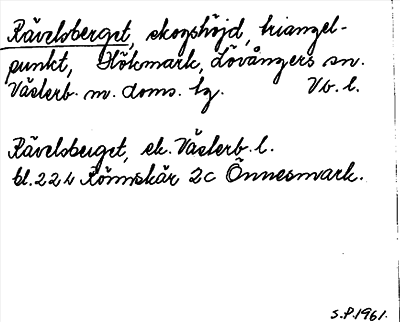 Rävelsberget, skogshöjd, triangel-
punkt, Hökmark, Lövångers sn.
Västerb. m. doms. lg. Vb. l.
Rävelsberget, ek. Västerb. l.
bl. 224 Rönnskär 2c Önnesmark.
S.P. 1961.